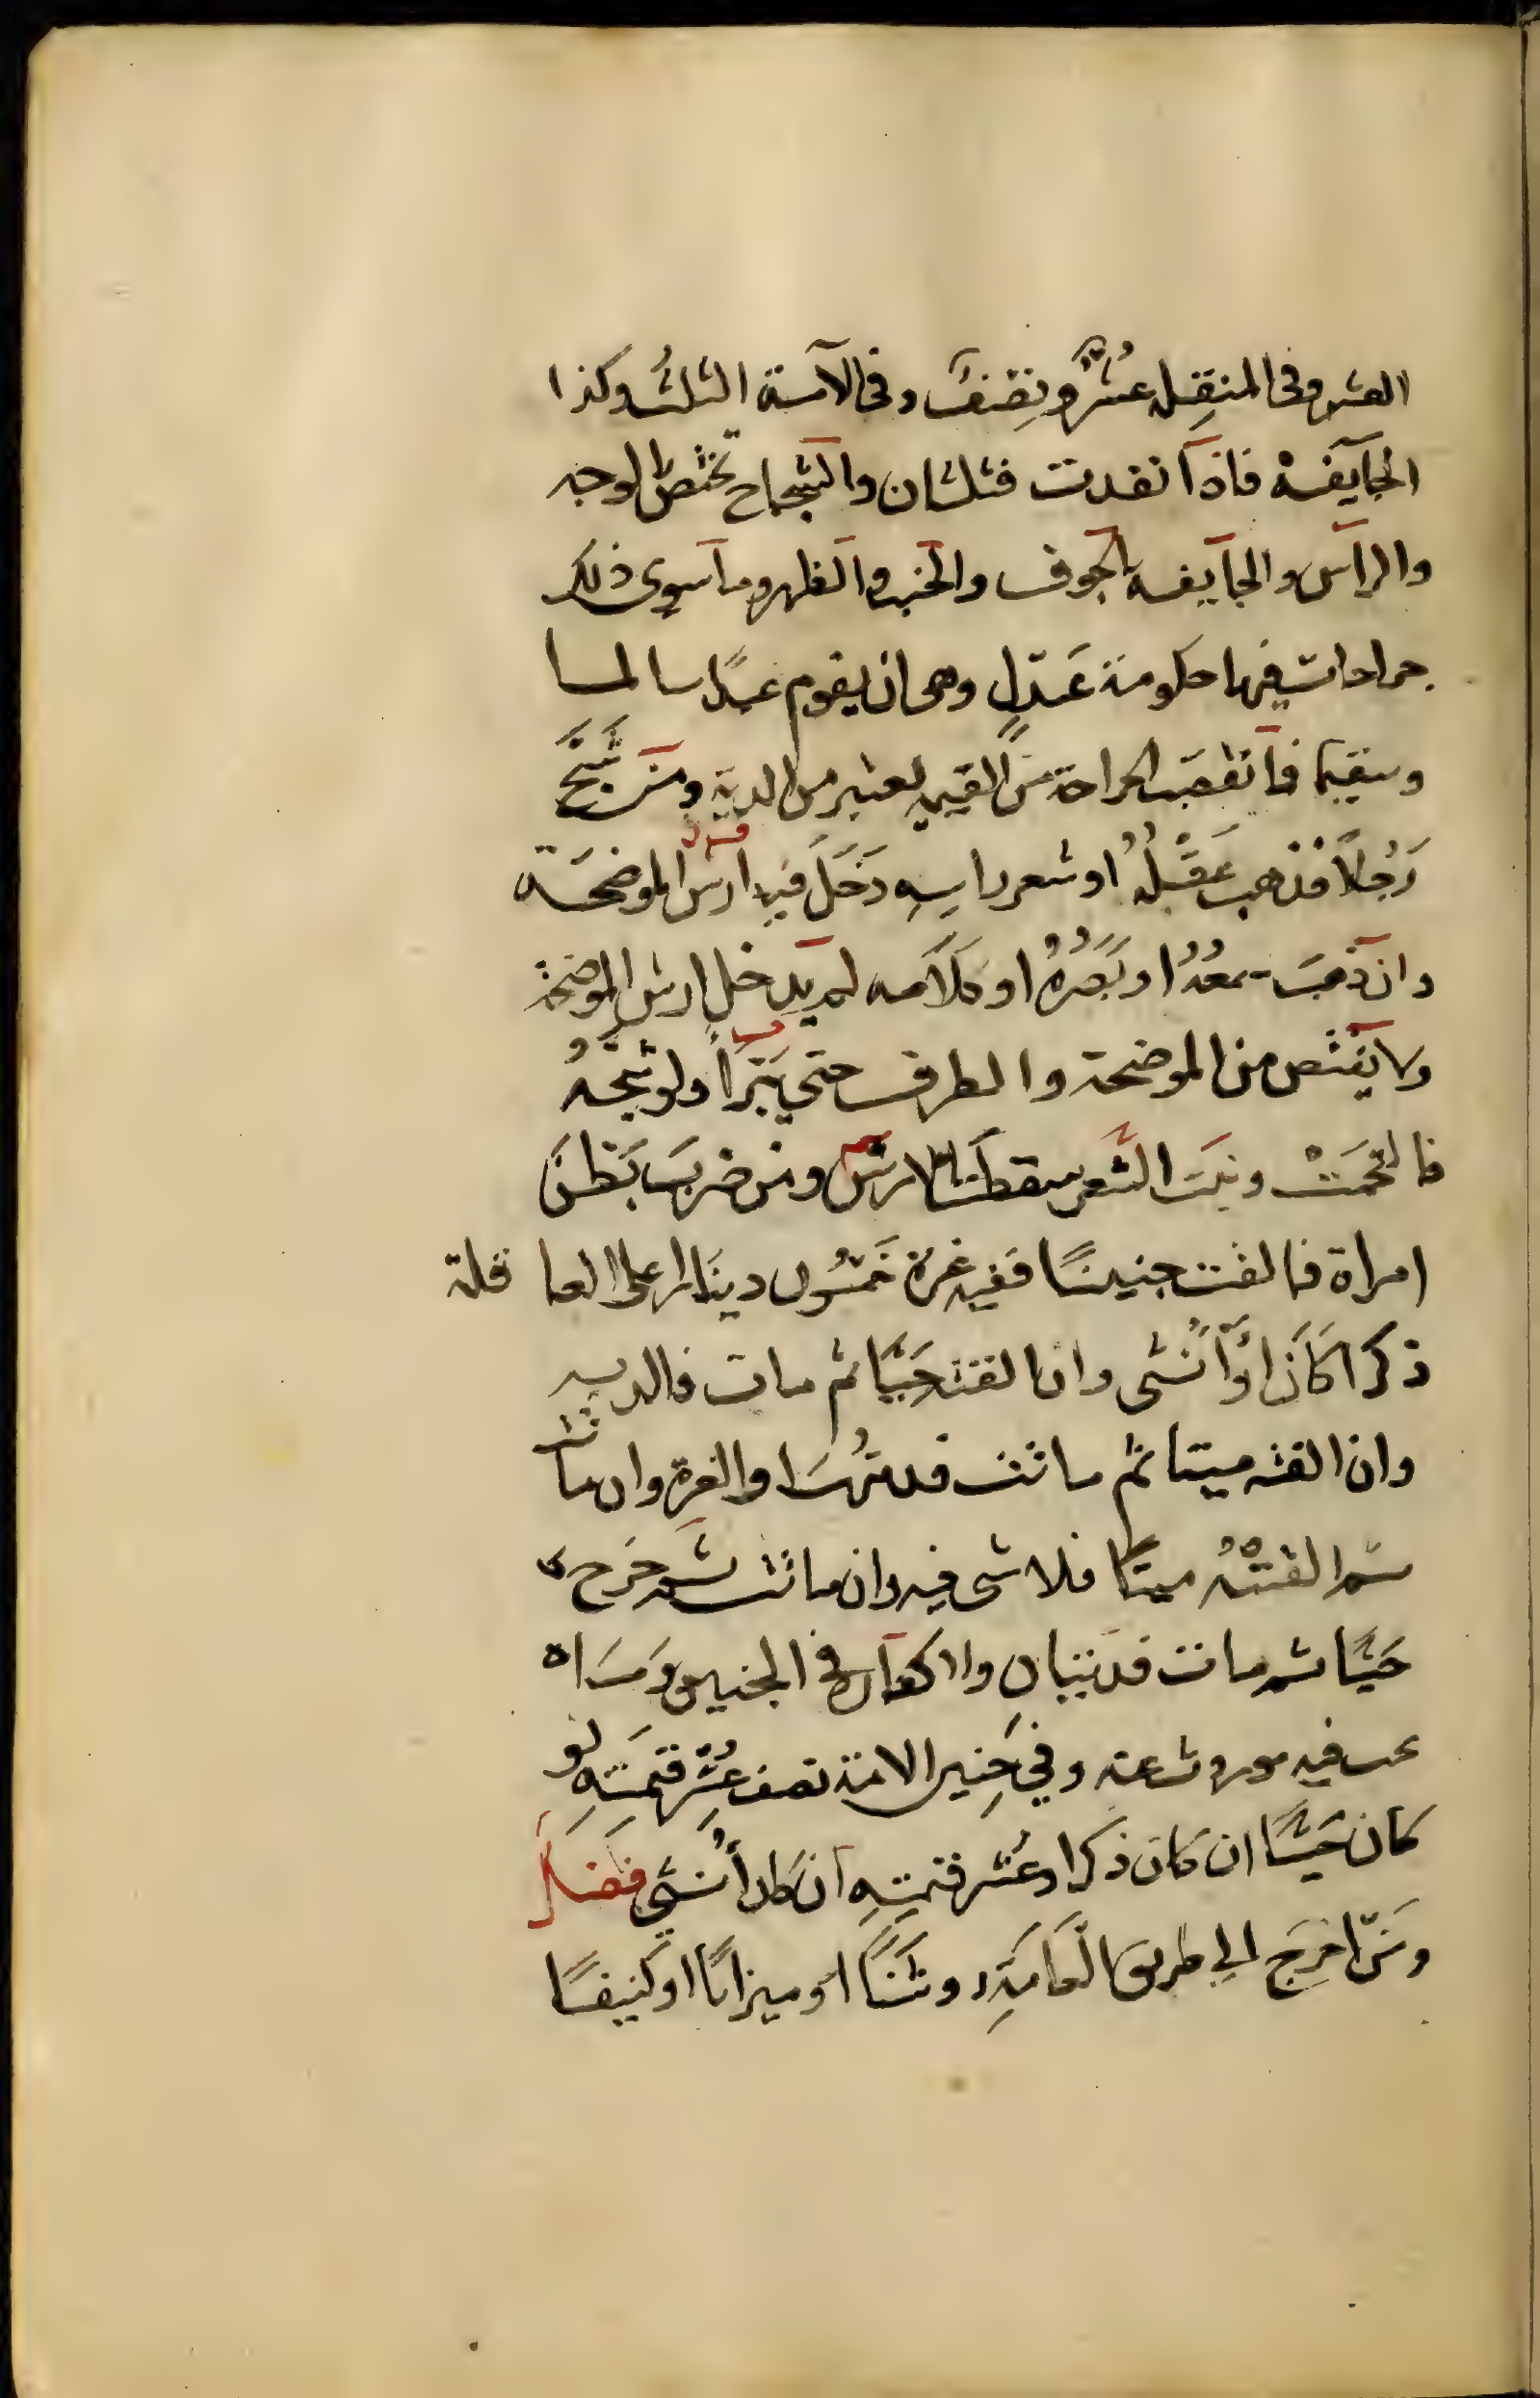 العشر وفى المنقله عُشرٌ ونِصْف وفى الآمة الثلث وكذا
الجآيفة فاذا نفذت فثلثان والشجاح تختص بالوجه
والراس والجآيفه بالجوف والجنب والظهر وما سوى ذلك
جراحات فيها حكومة عَدلٍ وهى ان يقوم عبدًا سالما
وسقيما فما نقصت الجراحة من القيمة يعتبر من الدية ومَن شَجَّ
رَجُلاً فذهب عَقْلُهُ او شعر راسِهِ دَخَلَ فيه ارش الموضحَة
وان ذهبَ سمعُهُ او بَصَرُهُ او كلَامه لم يدخل ارش الموضحة
ولا يقتص من الموضحة والطرف حتى يَبْرَأ ولو شجَّهُ
فالتحمَتْ ونبتَ الشَّعر سقط الارش ومن ضربَ بَطْنَ
امراة فالقت جنينًا ففيه غرة خَمْسُون دينارا على العاقلة
ذكرا كَانَ أَوْ أُنْثى وان القته حَيًّا ثم مات فالديه
وان القته ميتا ثم ماتت فديتُهَا والغرة وان ماتت
ثم القتْهُ ميتًا فلا شى فيه وان ماتت ثم خرج
حَيًّا ثم مات فديتانِ ولا كفارة فى الجنين وَمَا
يجب فيه موروث عنه وفي جَنِين الامة نصف عُشْر قيمتِهِ لو
كان حَيًّا ان كان ذكرا وعُشر قيمتِهِ ان كان أُنثى فَصْل
ومَنْ اخرَجَ الى طريق العَامَّةِ روشَنًا او ميزابًا او كنيفًا